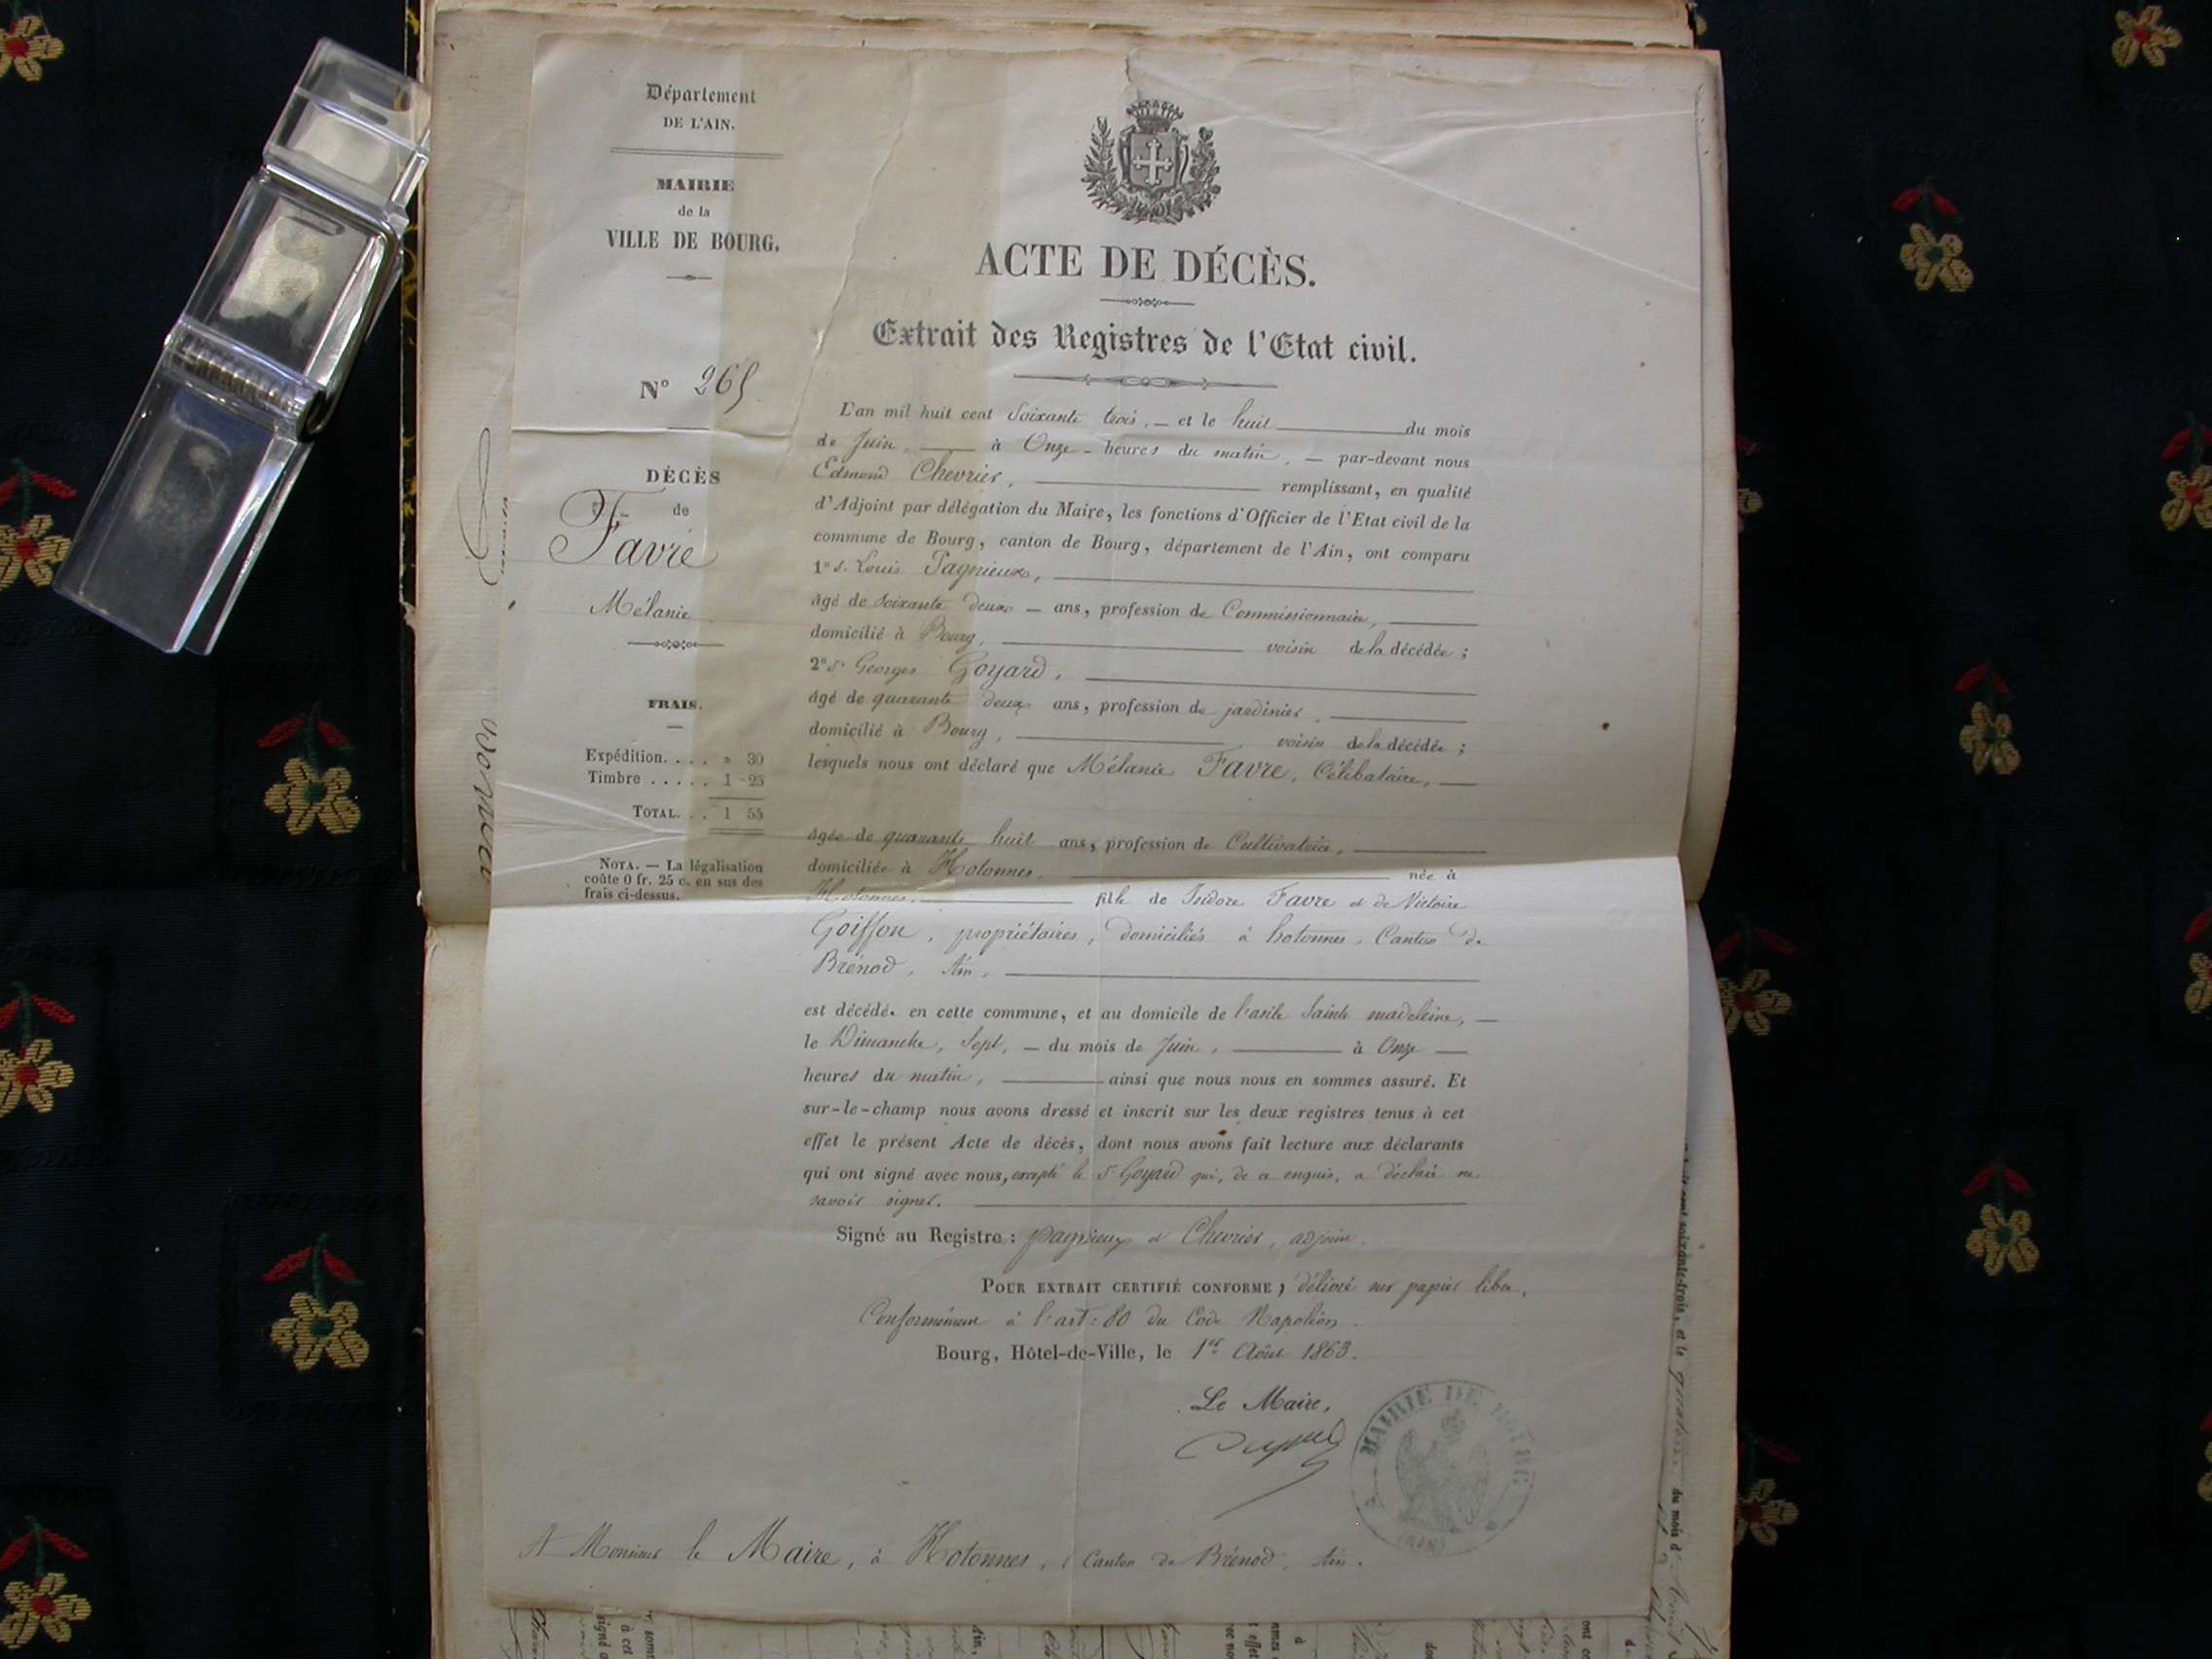 Département
DE L'AIN.
MAIRIE
de la
VILLE DE BOURG.
ACTE DE DÉCÈS.
Extrait des Registres de l'Etat civil.
N° 265
DÉCÈS
de
Favre
Mélanie
FRAIS.
Expédition. . . . » 30
Timbre . . . . . 1 25
TOTAL. . . 1 55
NOTA. — La légalisation
coûte 0 fr. 25 c. en sus des
frais ci-dessus.
L'an mil huit cent Soixante trois, — et le huit du mois
de Juin, à Onze heures du matin, — par-devant nous
Edmond Chevrier, remplissant, en qualité
d'Adjoint par délégation du Maire, les fonctions d'Officier de l'Etat civil de la
commune de Bourg, canton de Bourg, département de l'Ain, ont comparu
1° S. Louis Pagnieux,
âgé de soixante deux — ans, profession de Commissionnaire,
domicilié à Bourg, voisin de la décédée ;
2° Sr Georges Goyard,
âgé de quarante deux ans, profession de jardinier,
domicilié à Bourg, voisin de la décédée ;
lesquels nous ont déclaré que Mélanie Favre, Célibataire,
âgée de quarante huit ans, profession de Cultivatrice,
domiciliée à Hotonnes, née à
Hotonnes, fille de Isidore Favre et de Victoire
Goiffon, propriétaires, domiciliés à hotonnes, Canton de
Brénod, Ain,
est décédée en cette commune, et au domicile de l'asile Sainte madeleine, —
le Dimanche, Sept, — du mois de Juin, à Onze
heures du matin, ainsi que nous nous en sommes assuré. Et
sur-le-champ nous avons dressé et inscrit sur les deux registres tenus à cet
effet le présent Acte de décès, dont nous avons fait lecture aux déclarants
qui ont signé avec nous, excepté le Sr Goyard qui, de ce enquis, a déclaré ne
savoir signer.
Signé au Registre : pagnieux et Chevrier, adjoint.
POUR EXTRAIT CERTIFIÉ CONFORME, délivré sur papier libre,
Conformément à l'art: 80 du Code Napoléon.
Bourg, Hôtel-de-Ville, le 1er Août 1863.
Le Maire,
MAIRIE DE BOURG
(AIN)
A Monsieur le Maire, à Hotonnes, Canton de Brénod, Ain.